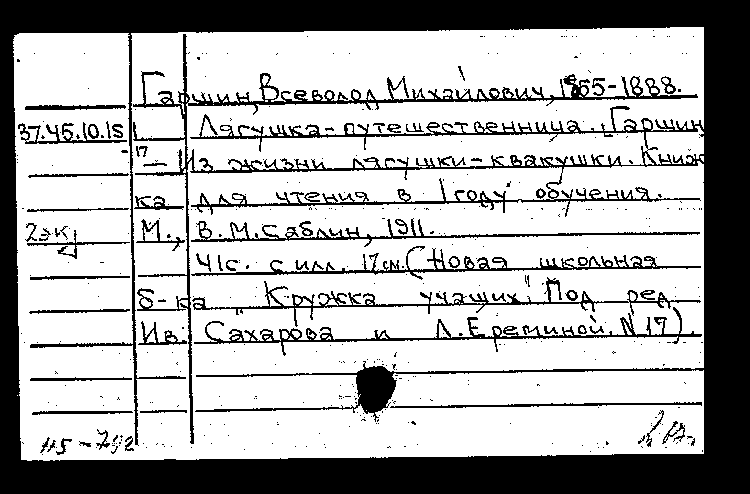 Гаршин, Всеволод Михайлович, 1855-1888.
37.45.10.15 Лягушка-путешественница. [Гаршин
17
— Из жизни лягушки-квакушки. Книж
ка для чтения в 1 году обучения.
2экз М., В.М.Саблин, 1911.
41с. с илл. 17см. (Новая школьная
б-ка "Кружка учащих" Под ред.
Ив. Сахарова и Л.Ереминой. N 17).